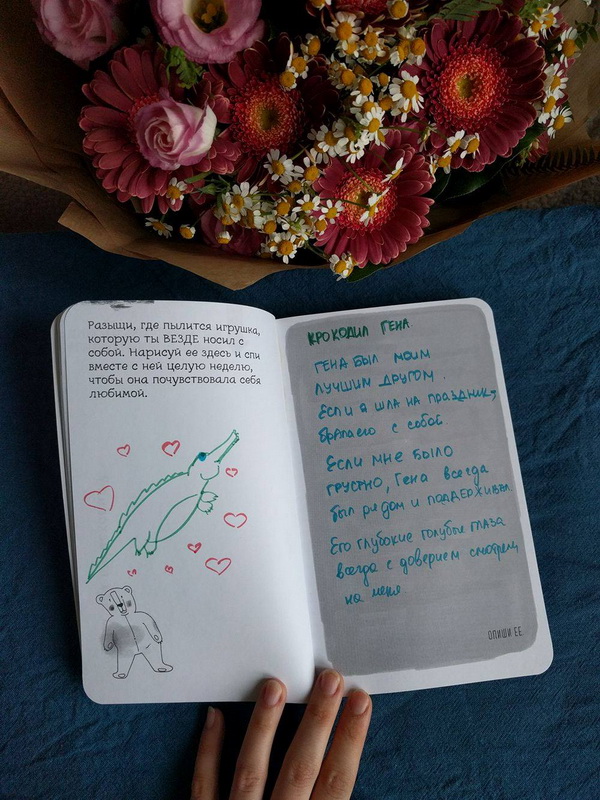 Разыщи, где пылится игрушка,
которую ты ВЕЗДЕ носил с
собой. Нарисуй ее здесь и спи
вместе с ней целую неделю,
чтобы она почувствовала себя
любимой.
КРОКОДИЛ ГЕНА
ГЕНА БЫЛ МОИМ
ЛУЧШИМ ДРУГОМ.
Если я шла на праздник,
брала его с собой.
Если мне было
грустно, Гена всегда
был рядом и поддерживал
Его глубокие голубые глаза
всегда с доверием смотрели
на меня
ОПИШИ ЕЕ